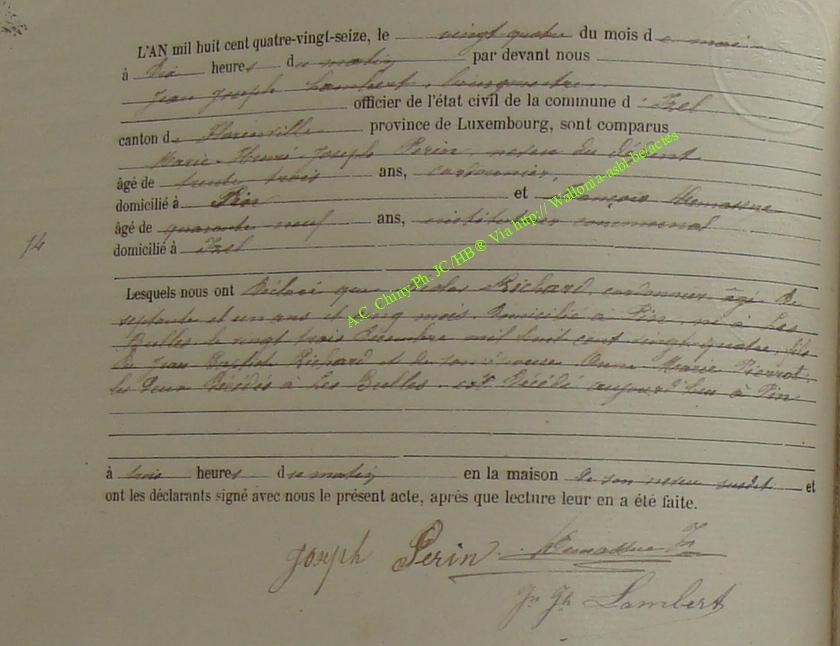 L'AN mil huit cent quatre-vingt-seize, le vingt quatre du mois de mai
à Dix heures du matin par devant nous
Jean Joseph Lambert, bourgmestre
officier de l'état civil de la commune d'Izel
canton de Florenville province de Luxembourg, sont comparus
Marie Henri Joseph Perin, neveu du défunt
âgé de trente trois ans, cordonnier,
domicilié à Pin et François
âgé de quarante neuf ans, instituteur communal
domicilié à Izel
14
Lesquels nous ont Déclaré que Richard, cordonnier, âgé de
septante et un ans et cinq mois, domicilié à Pin, né à Les
Bulles le vingt trois Décembre mil huit cent vingt quatre, fils
de Jean Baptist Richard et de Anne Marie Pierrot,
les Deux Décédés à Les Bulles, est Décédé aujourd'hui à Pin
à trois heures du matin en la maison de son neveu susdit et
ont les déclarants signé avec nous le présent acte, après que lecture leur en a été faite.
Joseph Perin.
Jn Jh Lambert
A.C. Chiny Ph. JC/HB® Via http://Wallonia-asbl.be/actes